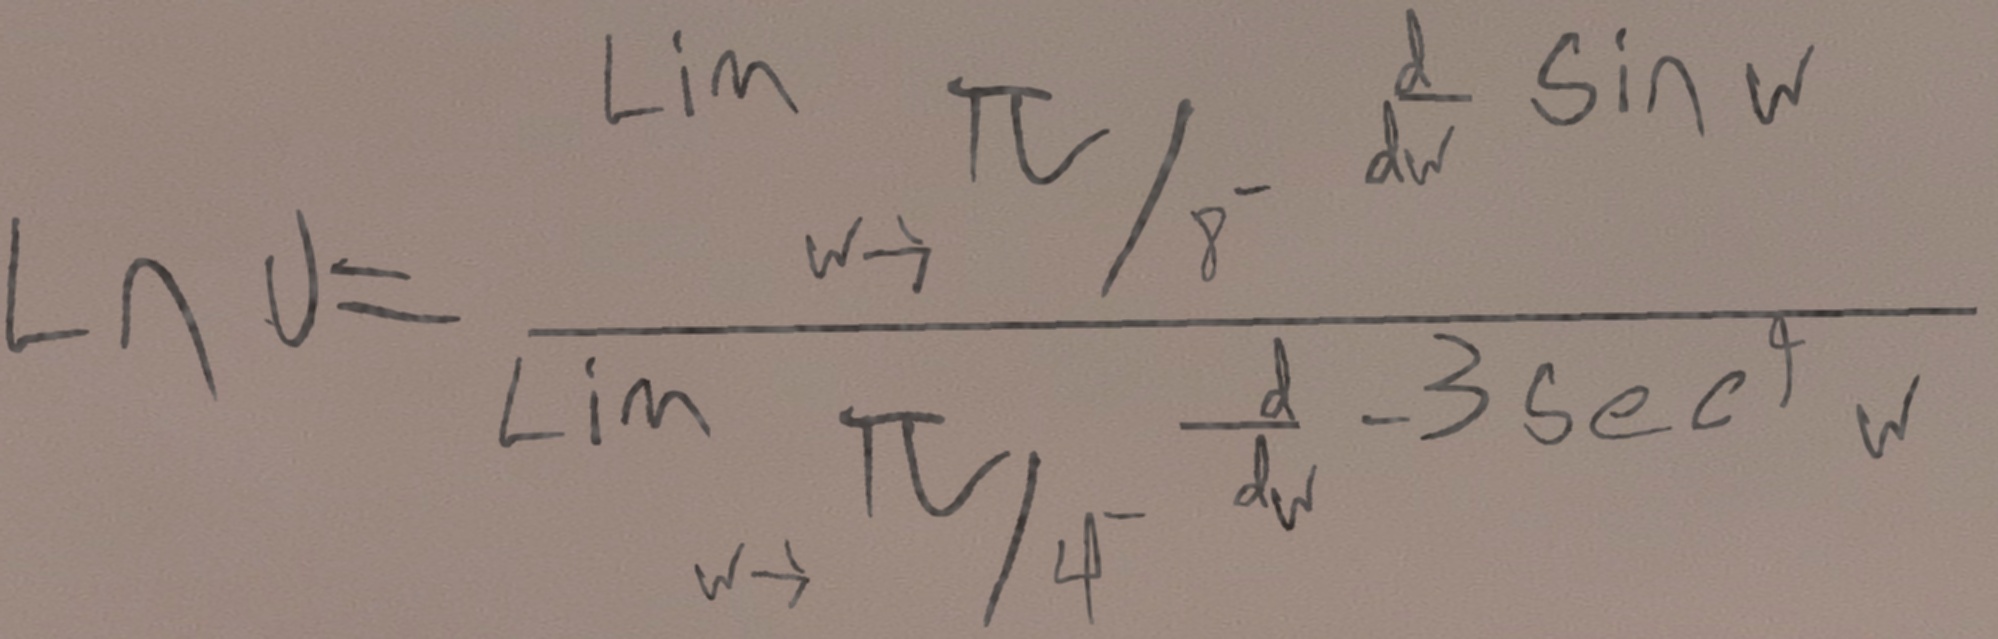 Ln U = \frac{Lim_{w \to \pi/8^-} \frac{d}{dw} sin w}{Lim_{w \to \pi/4^-} \frac{d}{dw} -3 sec^4 w}